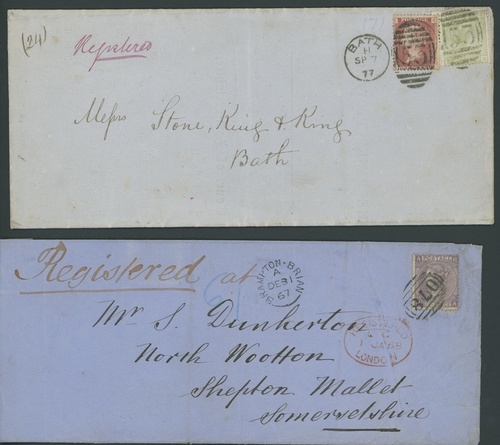 (24)
Registered
BATH
H
SP 7
77
53
53
Messrs Stone, King & King
Bath
Registered at
BRAMPTON-BRIAN
A
DE 31
67
POSTAGE
D78
Mr S. Dunkerton
North Wootton
Shepton Mallet
Somersetshire
REGISTERED
LONDON